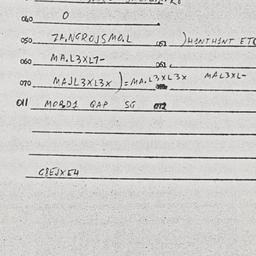 040 0
050 7A.NGROJSMO.L 051 )H1NTH1NT ETC
060 MA.L3XL7- 061
070 MAJL3XL3X )=MA.L3XL3X MAL3XL-
011 MORD1 GAP SG 012
GBEJXE4